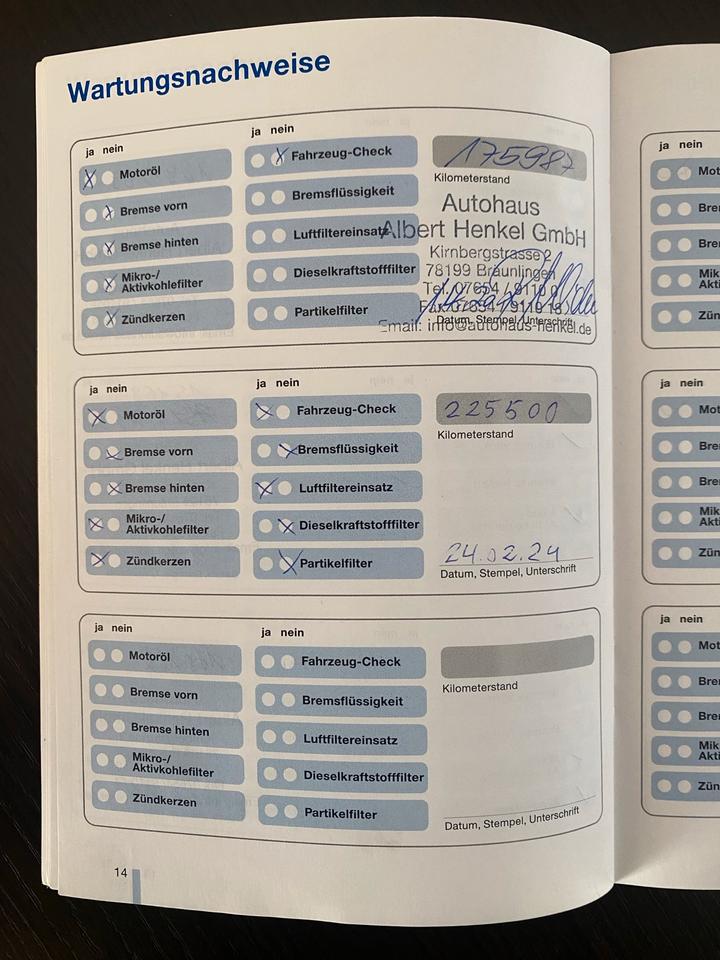 Wartungsnachweise
ja nein
Motoröl
Bremse vorn
Bremse hinten
Mikro-/
Aktivkohlefilter
Zündkerzen
ja nein
Fahrzeug-Check
Bremsflüssigkeit
Luftfiltereinsatz
Dieselkraftstofffilter
Partikelfilter
175987
Kilometerstand
Autohaus
Albert Henkel GmbH
Kirnbergstrasse 2
78199 Bräunlingen
Email: info@autohaus-henkel.de
Datum, Stempel, Unterschrift
ja nein
Motoröl
Bremse vorn
Bremse hinten
Mikro-/
Aktivkohlefilter
Zündkerzen
ja nein
Fahrzeug-Check
Bremsflüssigkeit
Luftfiltereinsatz
Dieselkraftstofffilter
Partikelfilter
225500
Kilometerstand
24.02.24
Datum, Stempel, Unterschrift
ja nein
Motoröl
Bremse vorn
Bremse hinten
Mikro-/
Aktivkohlefilter
Zündkerzen
ja nein
Fahrzeug-Check
Bremsflüssigkeit
Luftfiltereinsatz
Dieselkraftstofffilter
Partikelfilter
Kilometerstand
Datum, Stempel, Unterschrift
14
ja nein
Mot
Bre
Bre
Mik
Akti
Zün
ja nein
Mot
Bre
Bre
Mik
Akti
Zün
ja nein
Mot
Bre
Bre
Mik
Akti
Zün